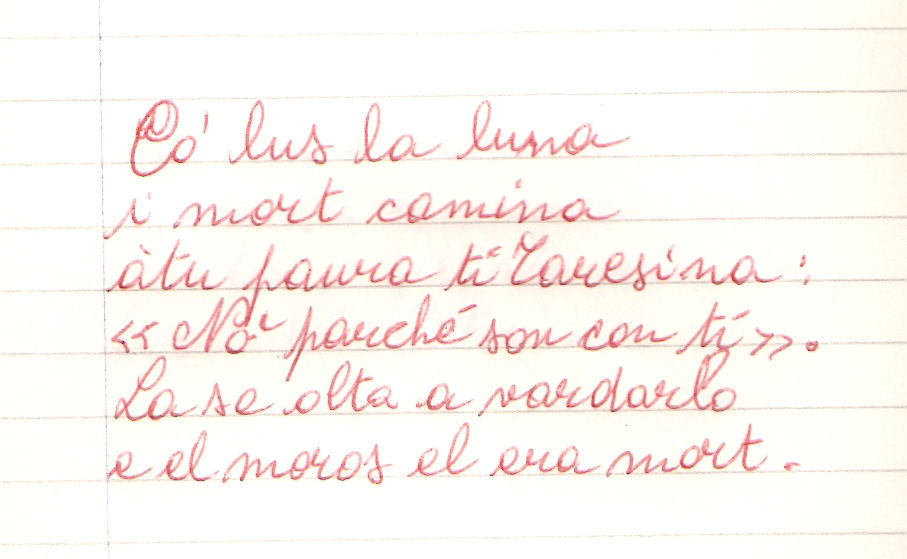 Có' lus la luna
i mort camina
àtu paura ti Taresina:
«Nò parché son con tí».
La se olta a vardarlo
e el moros el era mort.